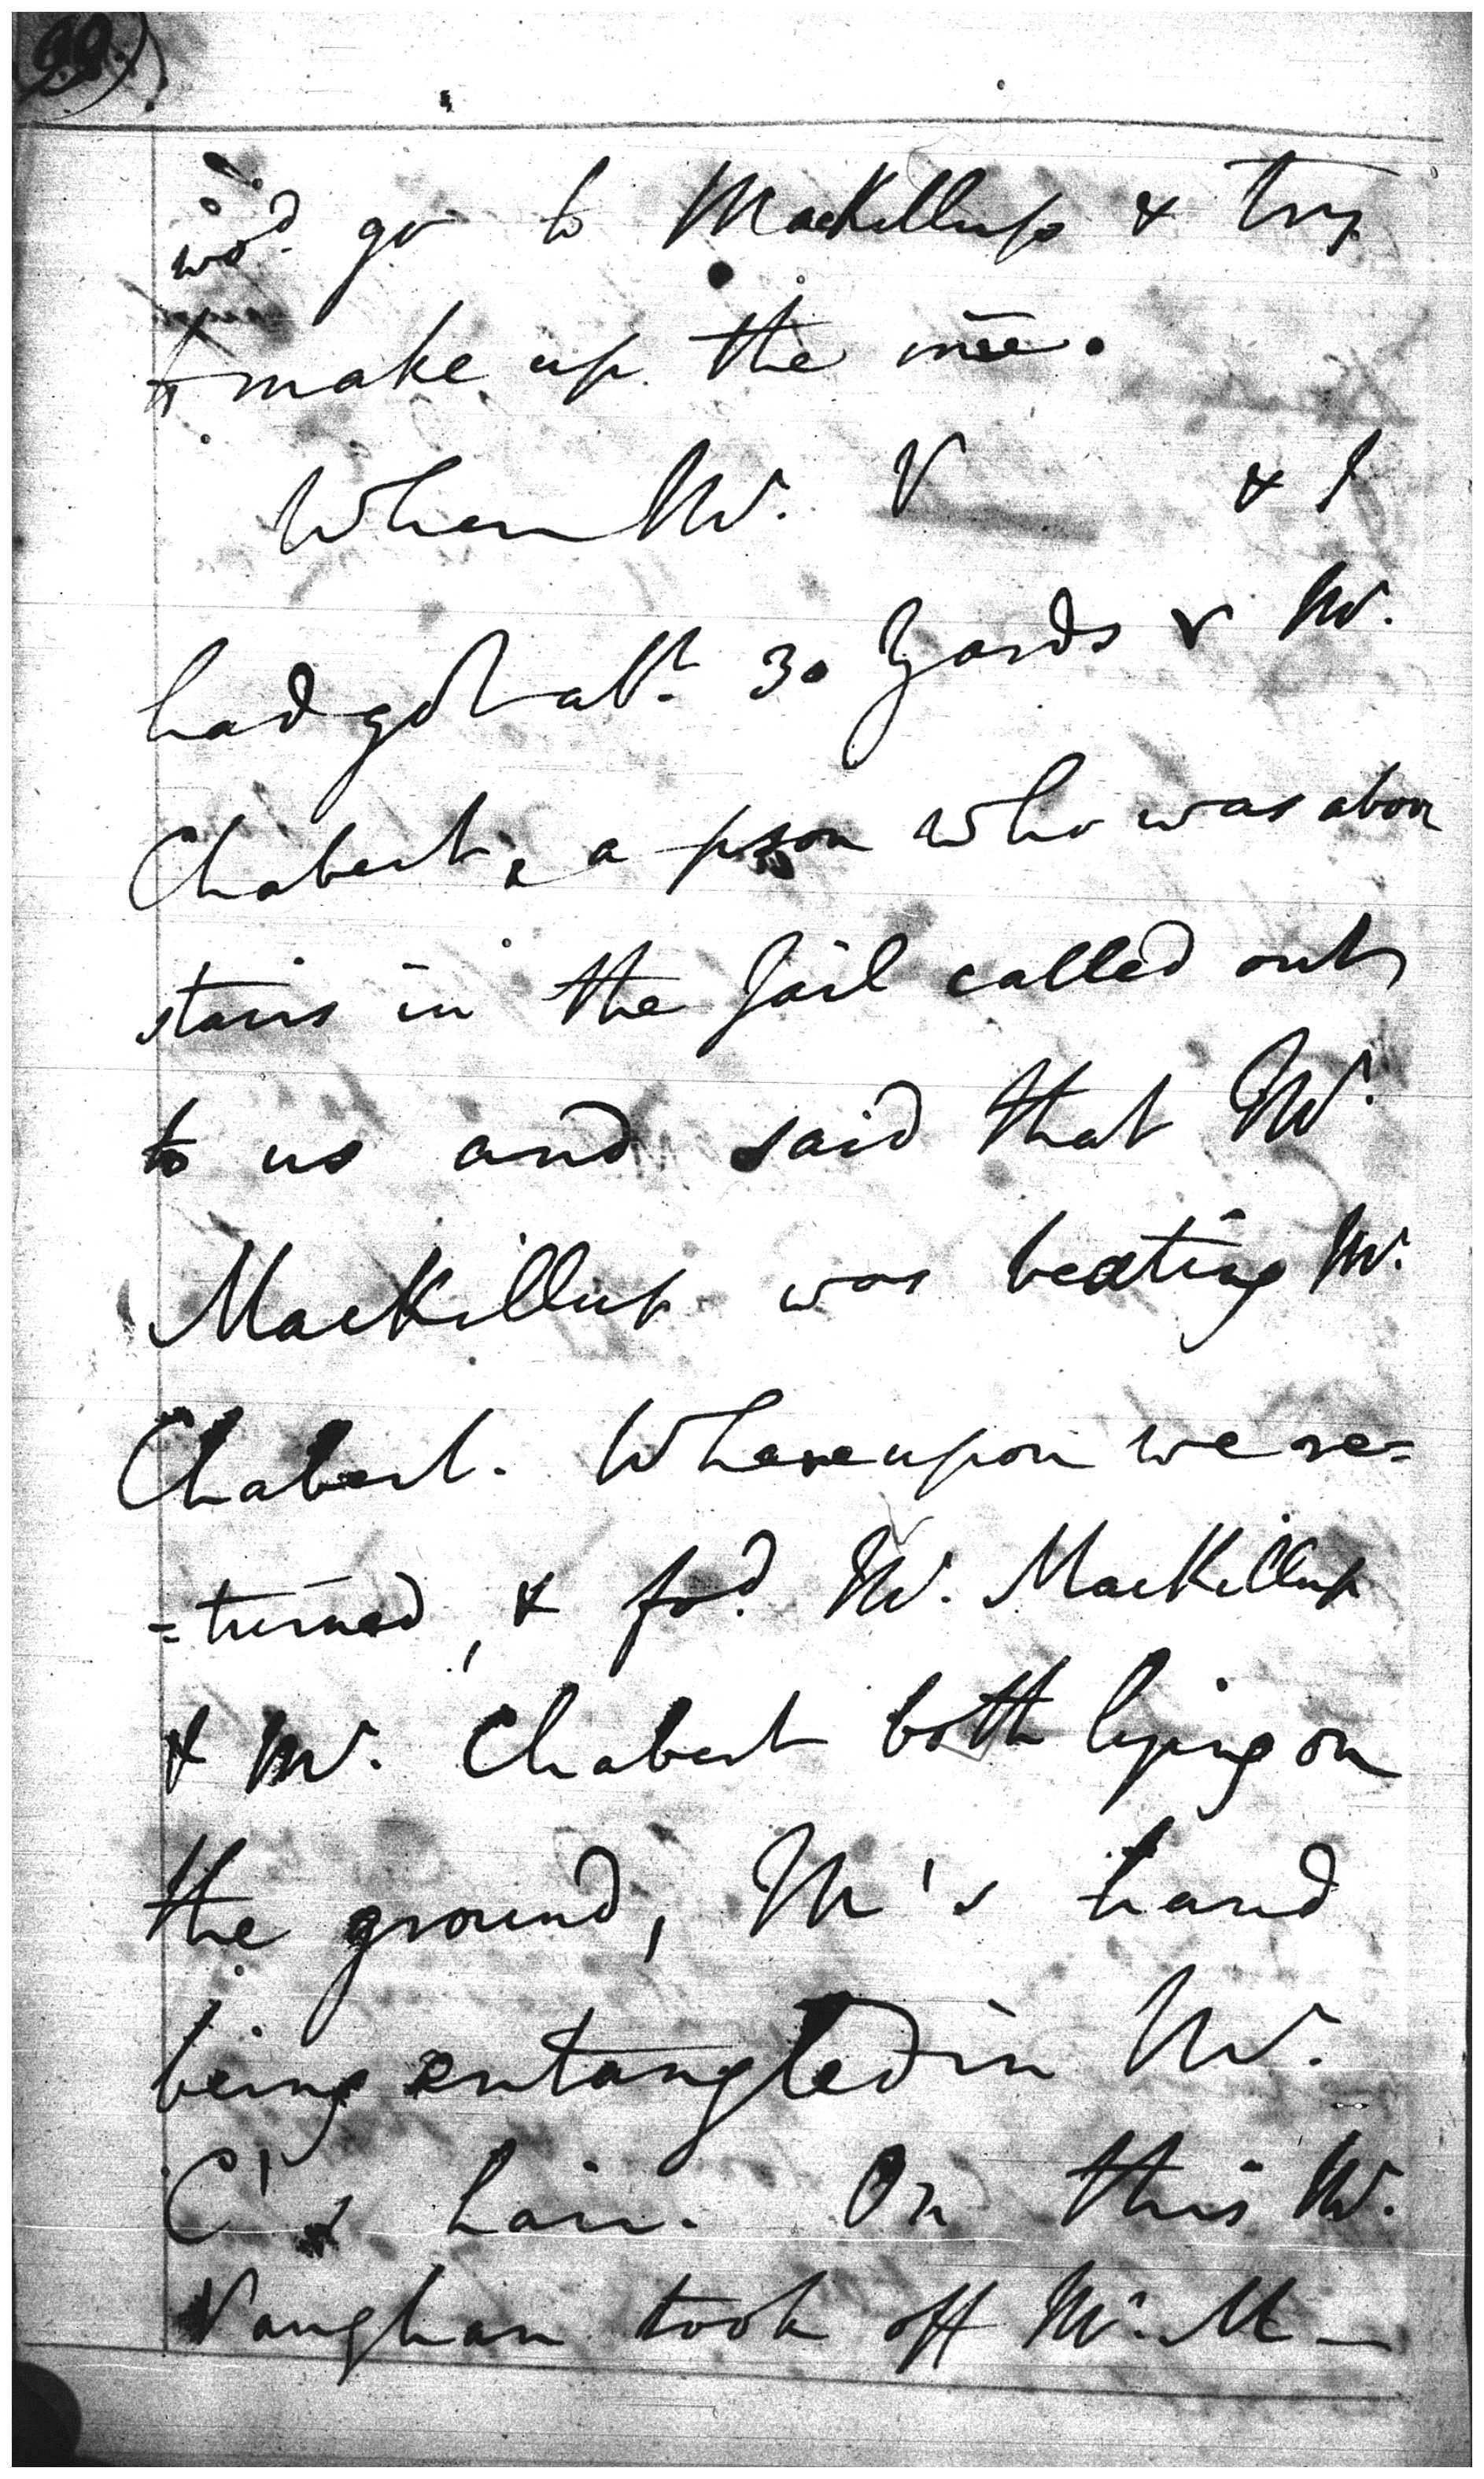 99)
wod. go to MacKillup & try
to make up the mre.
When Mr. V & I
had got abt. 30 Yards Mr.
Chabert, a pson who was above
stairs in the Jail called out
to us and said that Mr.
MacKillup was beating Mr.
Chabert. Whereupon we re=
=turned, & fod. Mr. MacKillup
& Mr. Chabert both lying on
the ground, M's hand
being entangled in Mr.
C's hair. On this Mr.
Vaughan took off Mr. M—